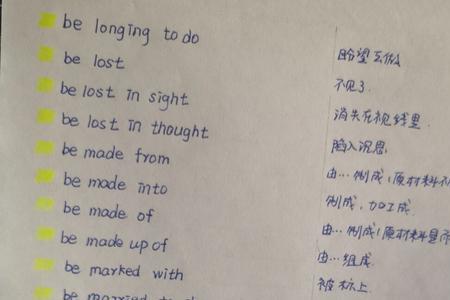 be longing to do 盼望去做
be lost 不见了
be lost in sight 消失在视线里.
be lost in thought 陷入沉思
be made from 由…制成(原材料不
be made into 制成,加工成
be made of 由…制成(原材料显
be made up of 由…组成
be marked with 被标上
be married to